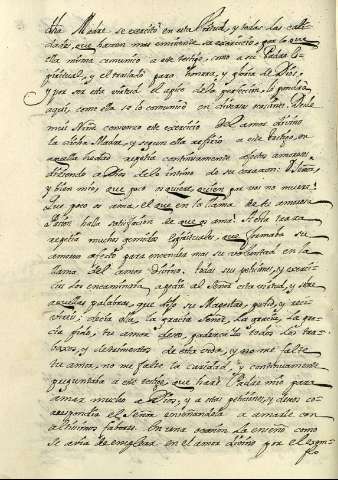 dha Madre, se exercitó en esta Virtud, y todas las cali-
dades, que hacen mas eminente su exercicio, por lo que
ella misma comunicó a este testigo, como a su Padre es-
piritual, y el tratarlo para honrra, y gloria de Dios,
y por ser esta virtud el apice de la perfeccion, lo pondrá
aqui, como ella se lo comunicó en diversas ocasiones. Desde
muy Niña comenzó este exercicio del amor divino
la dicha Madre, y segun ella refirió a este testigo, en
aquella hedad repetia continuamente afectos amorosos
diziendo a Dios de lo intimo de su corazon: Señor,
y bien mio, que poco os quiere, quien por vos no muere:
Que gozo os ama, el que en la llama de tu amorosa
Pasion halla satisfacion de que os ama: A esta traza
repetia muchos gemidos espirituales, que formaba su
amoroso afecto para encender mas su voluntad en la
llama del amor divino. Todas sus peticiones, y exerci-
cios los encaminaba a pedir al Señor esta virtud, y sobre
aquellas palabras, que dijo su Magestad, pedid, y reci-
vireis: decia ella, la gracia Señor, la gracia, la gra-
cia pido, tu amor deseo, padecer todos los tra-
baxos, y detrimentos de esta vida, y no me falte
tu amor, no me falte la caridad, y continuamente
preguntaba a este testigo, que haré Padre mio para
amar mucho a Dios, y a estas peticiones, y deseos co-
rrespondia el Señor enseñandola a amarle con
altisimos fabores. En una ocasion la enseñó como
se avia de emplear en el amor divino por el exem-
plo